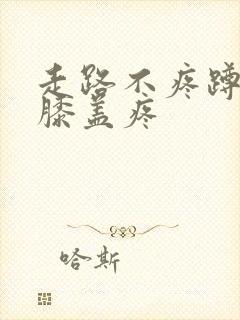 走路不疼蹲
膝盖疼
哈斯